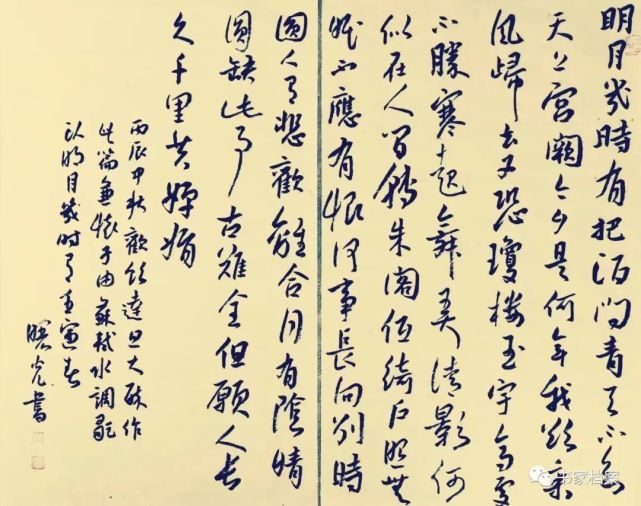 明月幾時有把酒問青天不知
天上宮闕今夕是何年我欲乘
風歸去又恐瓊樓玉宇高處
不勝寒起舞弄清影何
似在人間轉朱閣低綺戶照無
眠不應有恨何事長向別時
圓人有悲歡離合月有陰晴
圓缺此事古難全但願人長
久千里共嬋娟
丙辰中秋歡飲達旦大醉作
此篇兼懷子由蘇軾水調歌
头明月幾時有壬寅春
曙光書
书家档案